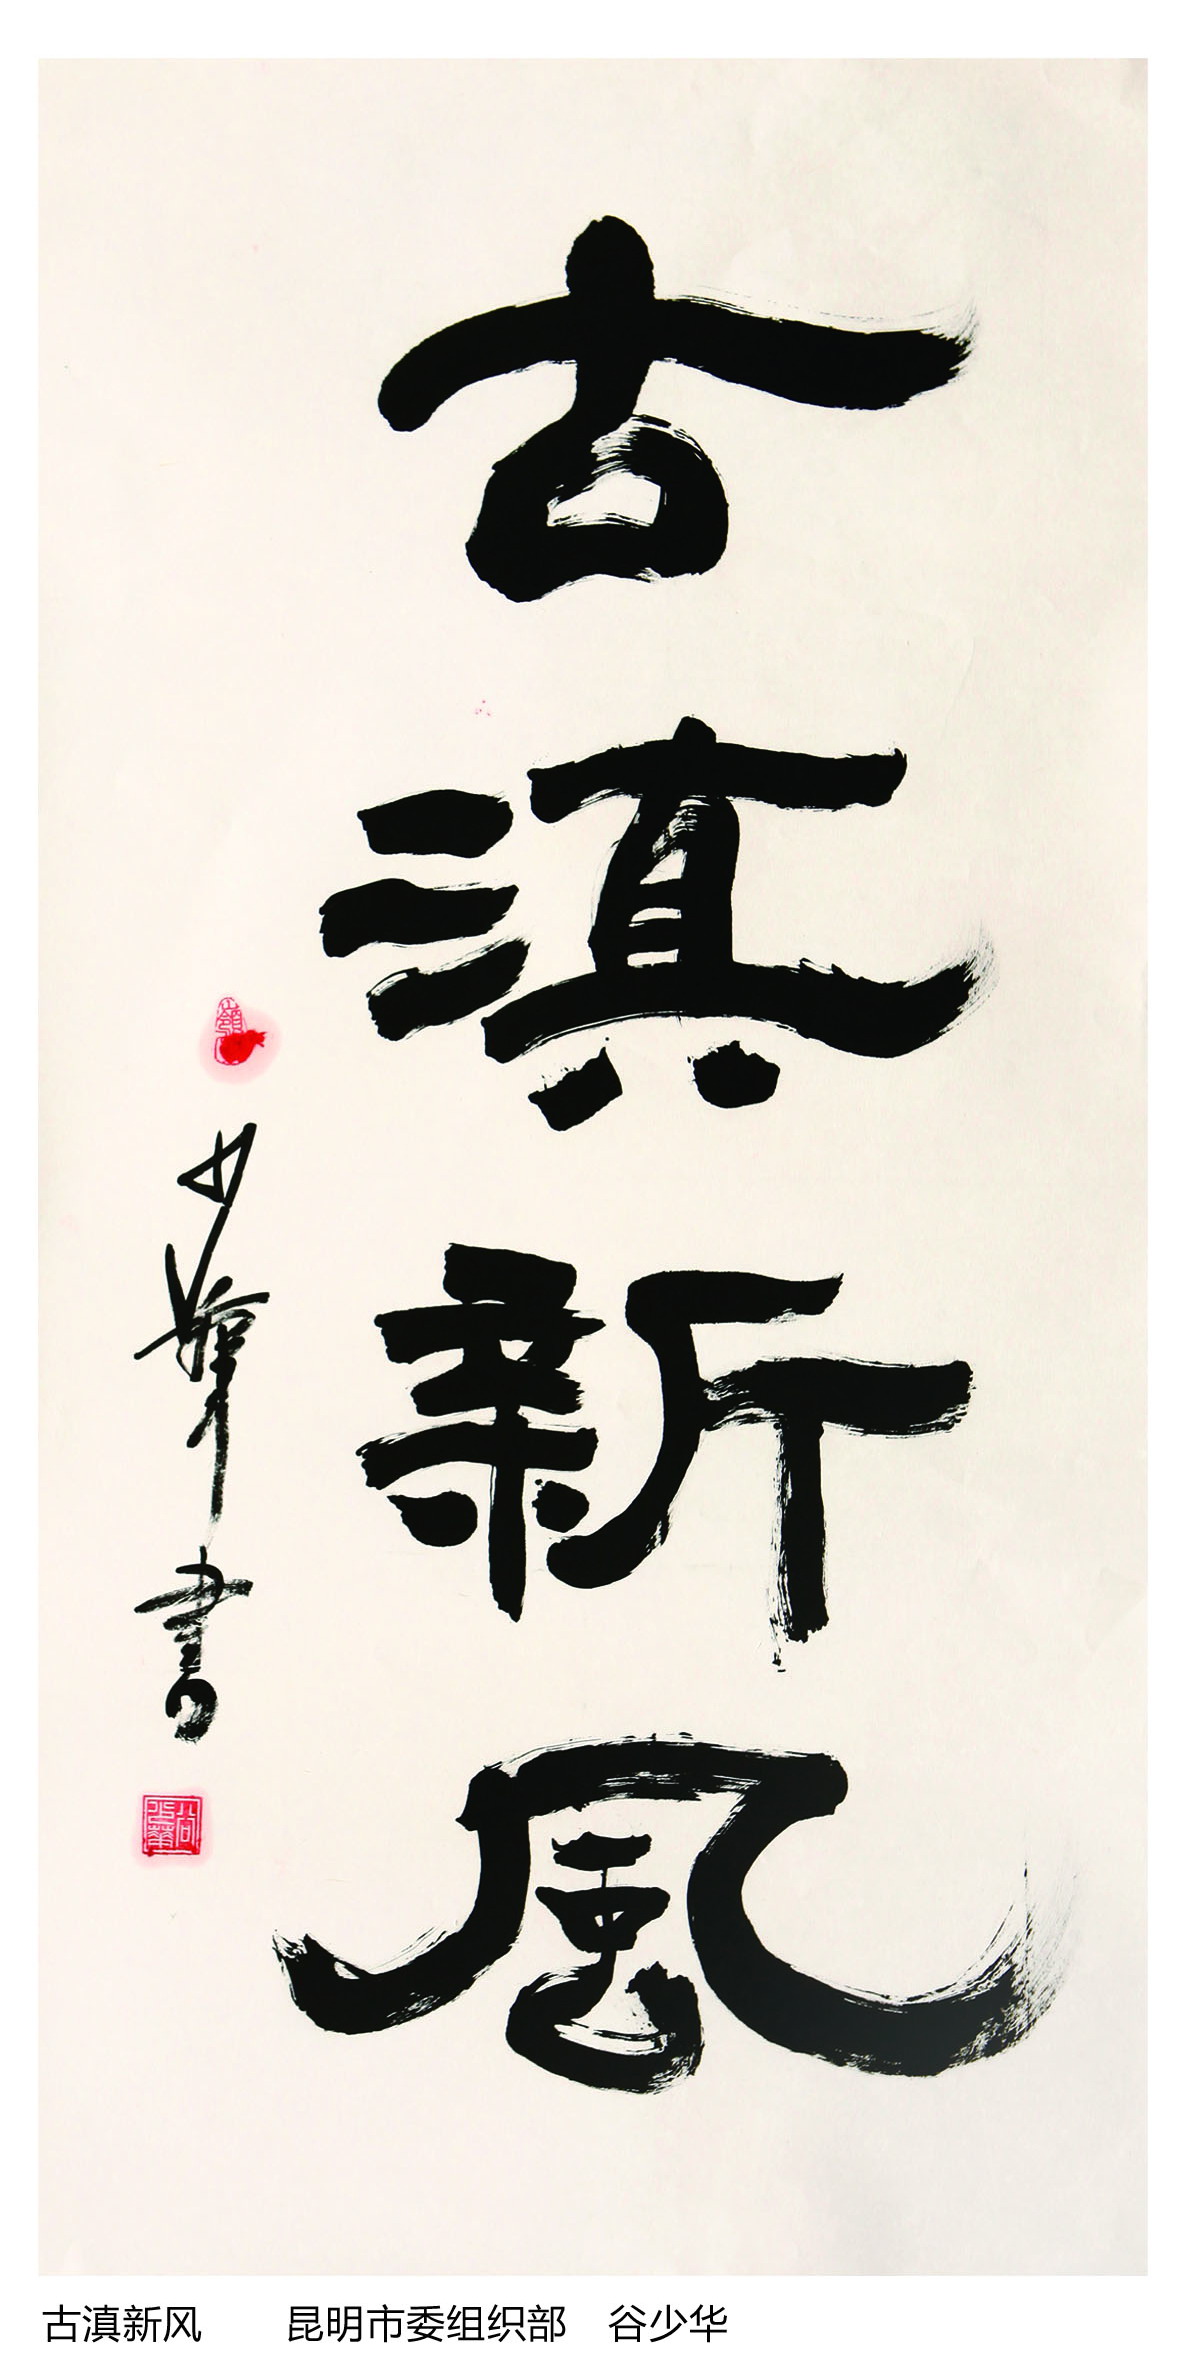 古滇新風
少華書
谷少華
古滇新风 昆明市委组织部 谷少华